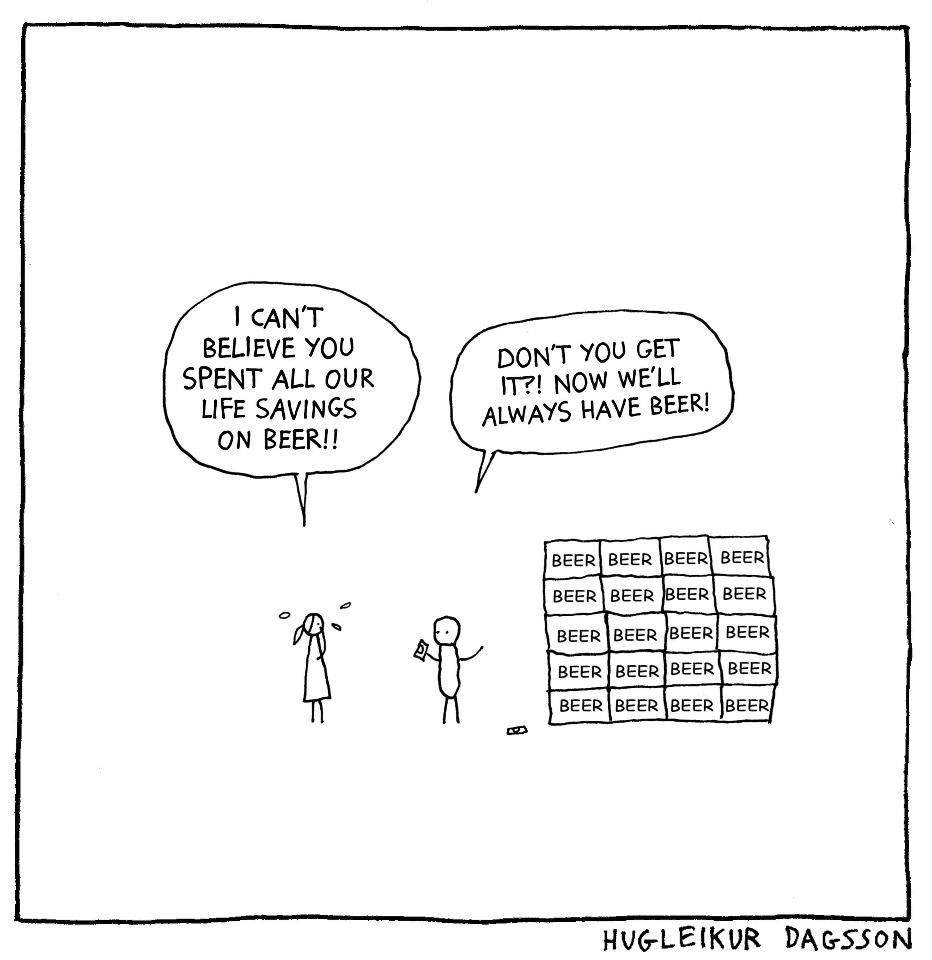 I CAN'T
BELIEVE YOU
SPENT ALL OUR
LIFE SAVINGS
ON BEER!!
DON'T YOU GET
IT?! NOW WE'LL
ALWAYS HAVE BEER!
BEER BEER BEER BEER
BEER BEER BEER BEER
BEER BEER BEER BEER
BEER BEER BEER BEER
BEER BEER BEER BEER
HUGLEIKUR DAGSSON